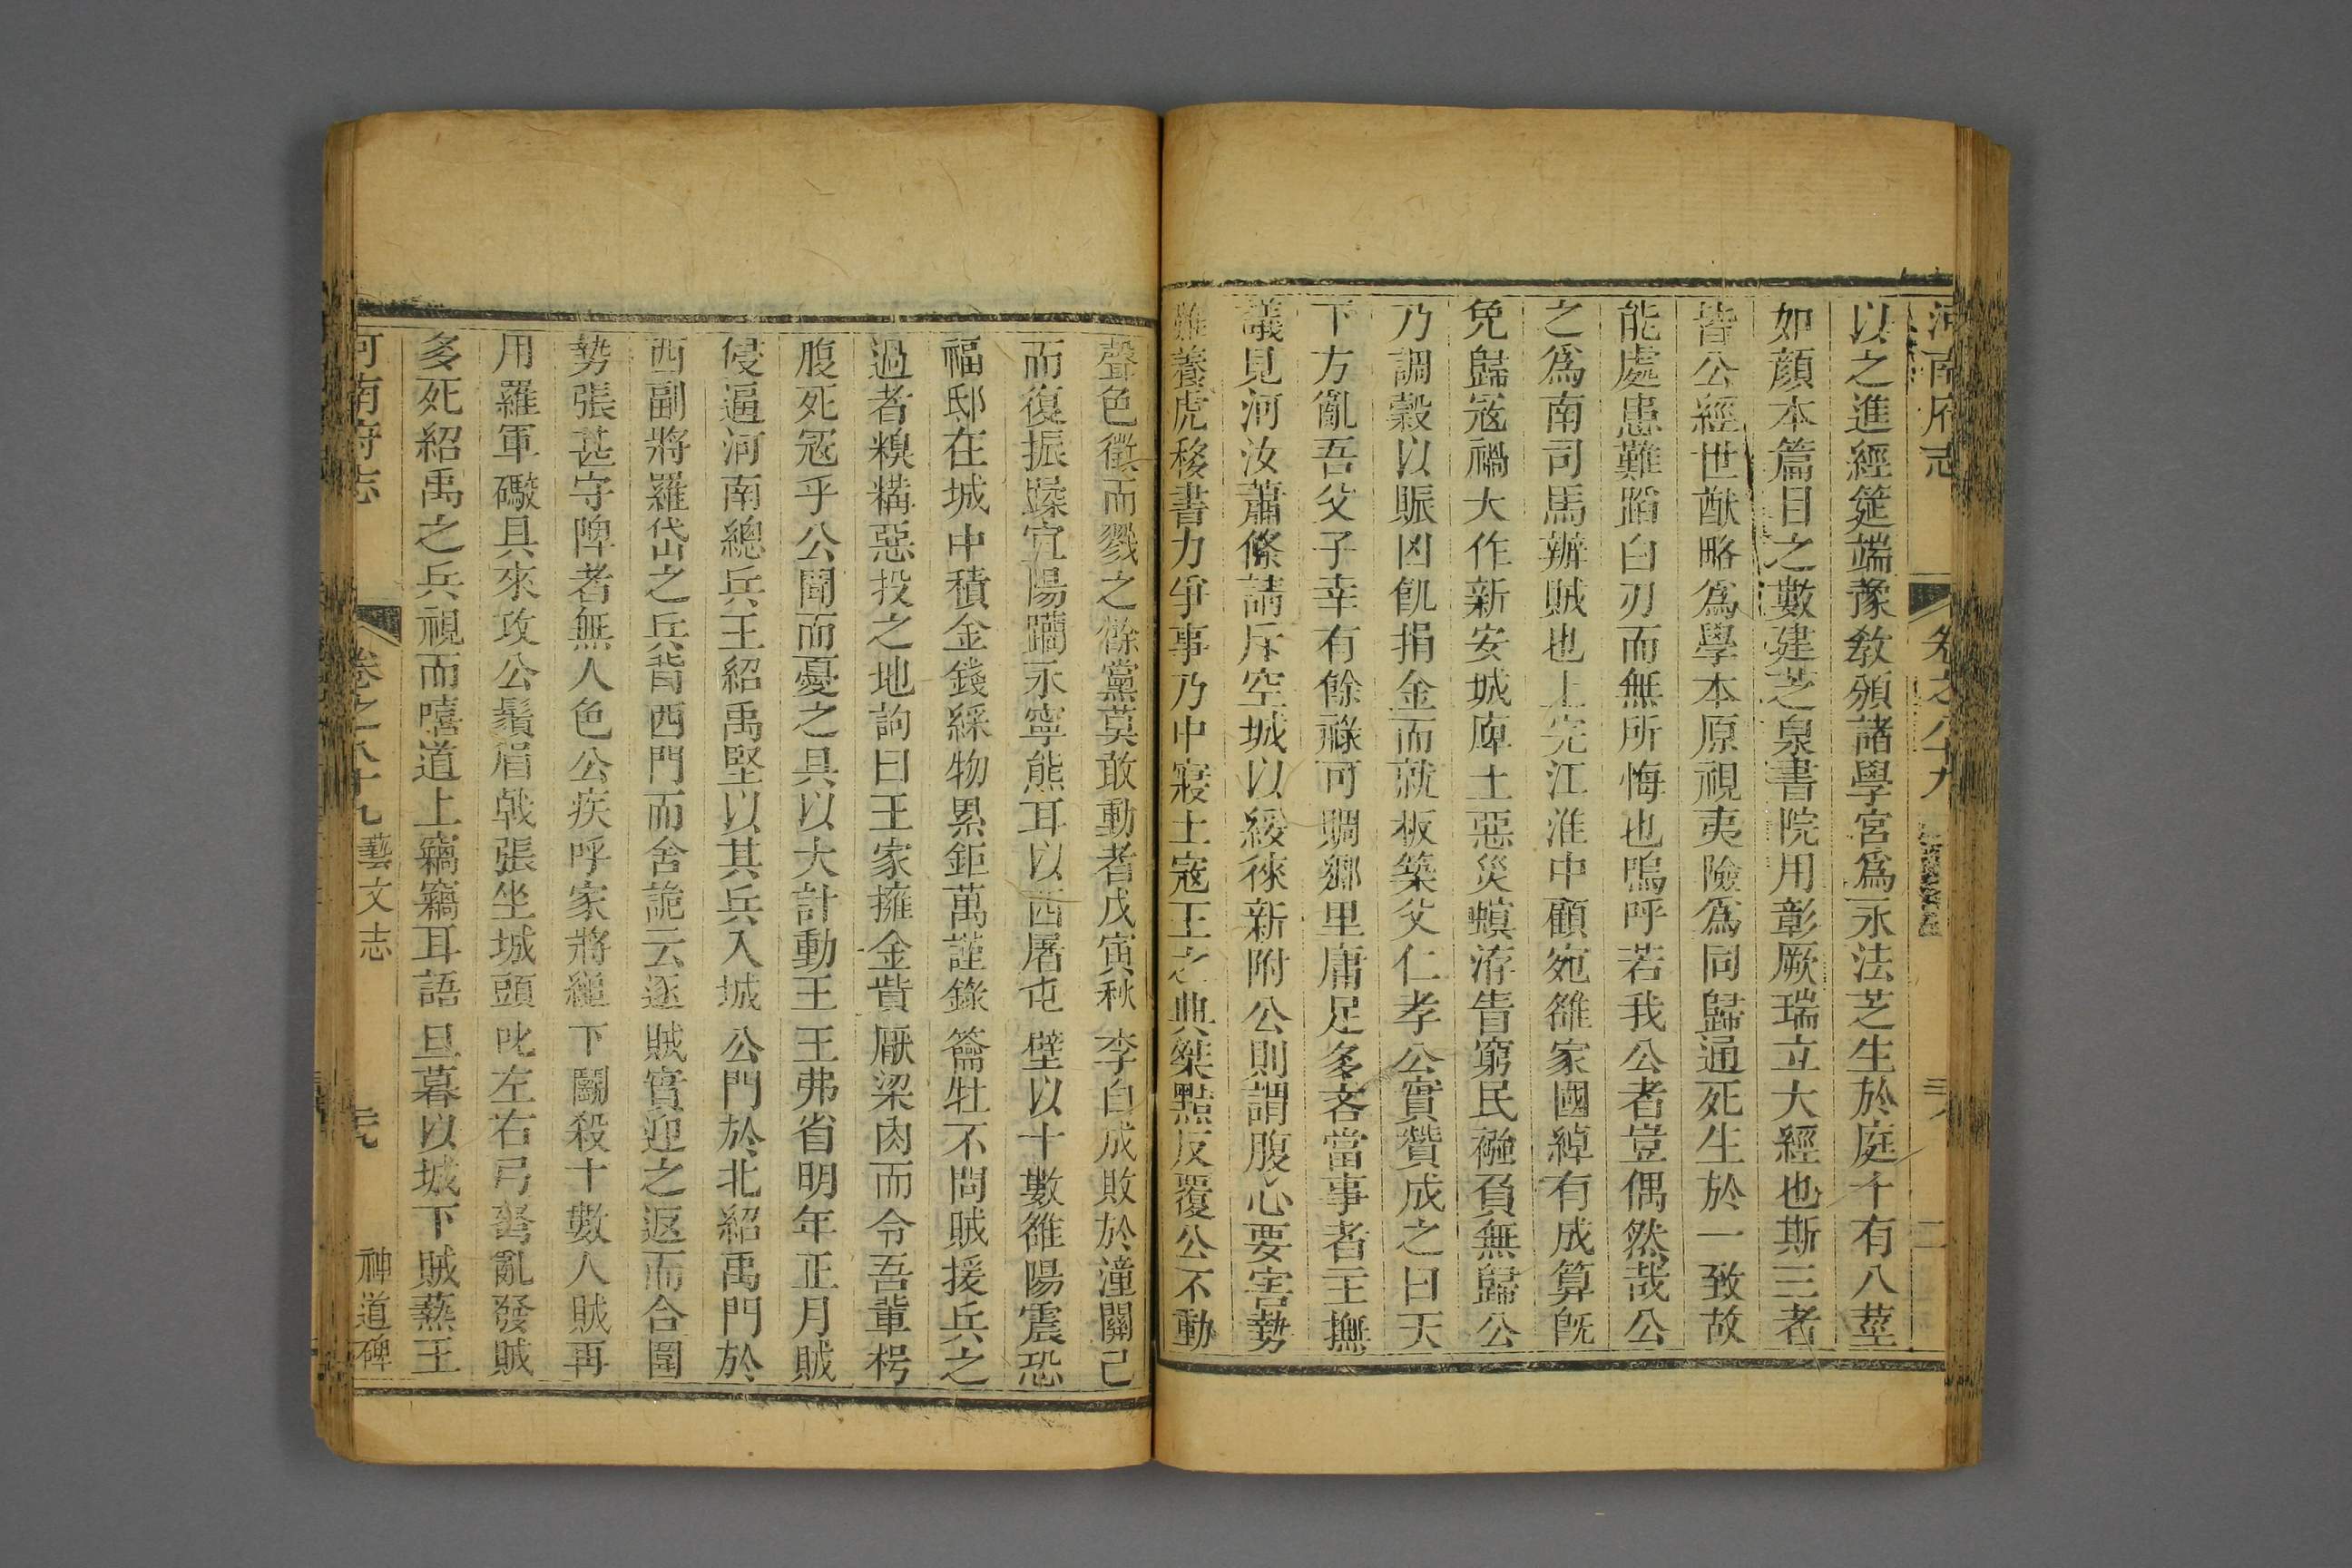 河南府志 卷之八十九
以之進經筵端豫敎頒諸學宮爲永法芝生於庭十有八莖
如顏本篇目之數建芝泉書院用彰厥瑞立大經也斯三者
皆公經世猷略爲學本原視夷險爲同歸通死生於一致故
能處患難蹈白刃而無所悔也嗚呼若我公者豈偶然哉公
之爲南司馬辦賊也上完江淮中顧宛雒家國綽有成算旣
免歸寇禍大作新安城庳土惡災螟洊眚窮民襁負無歸公
乃調穀以賑凶飢捐金而就板築父仁孝公實贊成之曰天
下方亂吾父子幸有餘祿可賙鄉里庸足多吝當事者主撫
議見河汝蕭條請斥空城以綏徠新附公則謂腹心要害勢
難養虎移書力爭事乃中寢土寇王之典桀黠反覆公不動
聲色徵而戮之餘黨莫敢動者戊寅秋李自成敗於潼關己
而復振躁宜陽躪永寧熊耳以西屠屯壁以十數雒陽震恐
福邸在城中積金錢綵物累鉅萬謹錄籥牡不問賊援兵之
過者糗糒惡投之地訽曰王家擁金貲厭梁肉而令吾輩枵
腹死寇乎公聞而憂之具以大計動王王弗省明年正月賊
侵逼河南總兵王紹禹堅以其兵入城公門於北紹禹門於
西副將羅岱之兵背西門而舍詭云逐賊實迎之返而合圍
勢張甚守陴者無人色公疾呼家將縋下鬭殺十數人賊再
用羅軍礮具來攻公鬚眉戟張坐城頭叱左右弓弩亂發賊
多死紹禹之兵視而嘻道上竊竊耳語旦暮以城下賊爇王
河南府志 卷之八十九 藝文志 神道碑